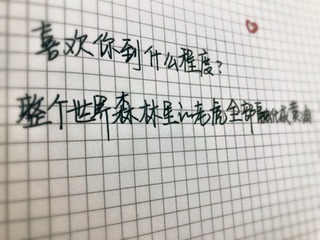 喜欢你到什么程度?
整个世界森林里的老虎全部融化成黄油